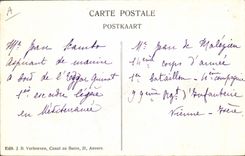 A
CARTE POSTALE
POSTKAART
Mr Jean
Aspirant de marine
à bord de l'
1ère escadre légère
en Méditerranée
Mr Jean de
14ème corps d'armée
1er bataillon - compagnie
99ème Regt d'Infanterie
Vienne - Isère
Edit. J. B. Verhoeven, Canal au Sucre, 21, Anvers